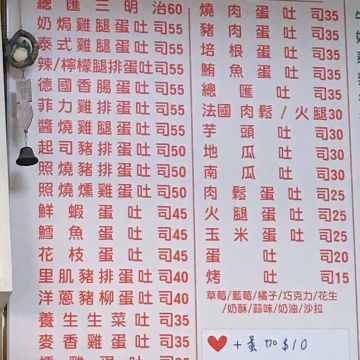 總匯三明治60
奶焗雞腿蛋吐司55
泰式雞腿蛋吐司55
辣/檸檬腿排蛋吐司55
德國香腸蛋吐司55
菲力雞排蛋吐司55
醬燒雞腿蛋吐司55
起司豬排蛋吐司50
照燒豬排蛋吐司50
照燒燻雞蛋吐司50
鮮蝦蛋吐司45
鱈魚蛋吐司45
花枝蛋吐司45
里肌豬排蛋吐司40
洋蔥豬柳蛋吐司40
養生生菜吐司35
麥香雞蛋吐司35
燒肉蛋吐司35
豬肉蛋吐司35
培根蛋吐司35
鮪魚蛋吐司35
總匯吐司35
法國肉鬆/火腿30
芋頭吐司30
地瓜吐司30
南瓜吐司30
肉鬆蛋吐司25
火腿蛋吐司25
玉米蛋吐司25
蛋吐司20
烤吐司15
草莓/藍莓/橘子/巧克力/花生
/奶酥/蒜味/奶油/沙拉
+蛋加$10